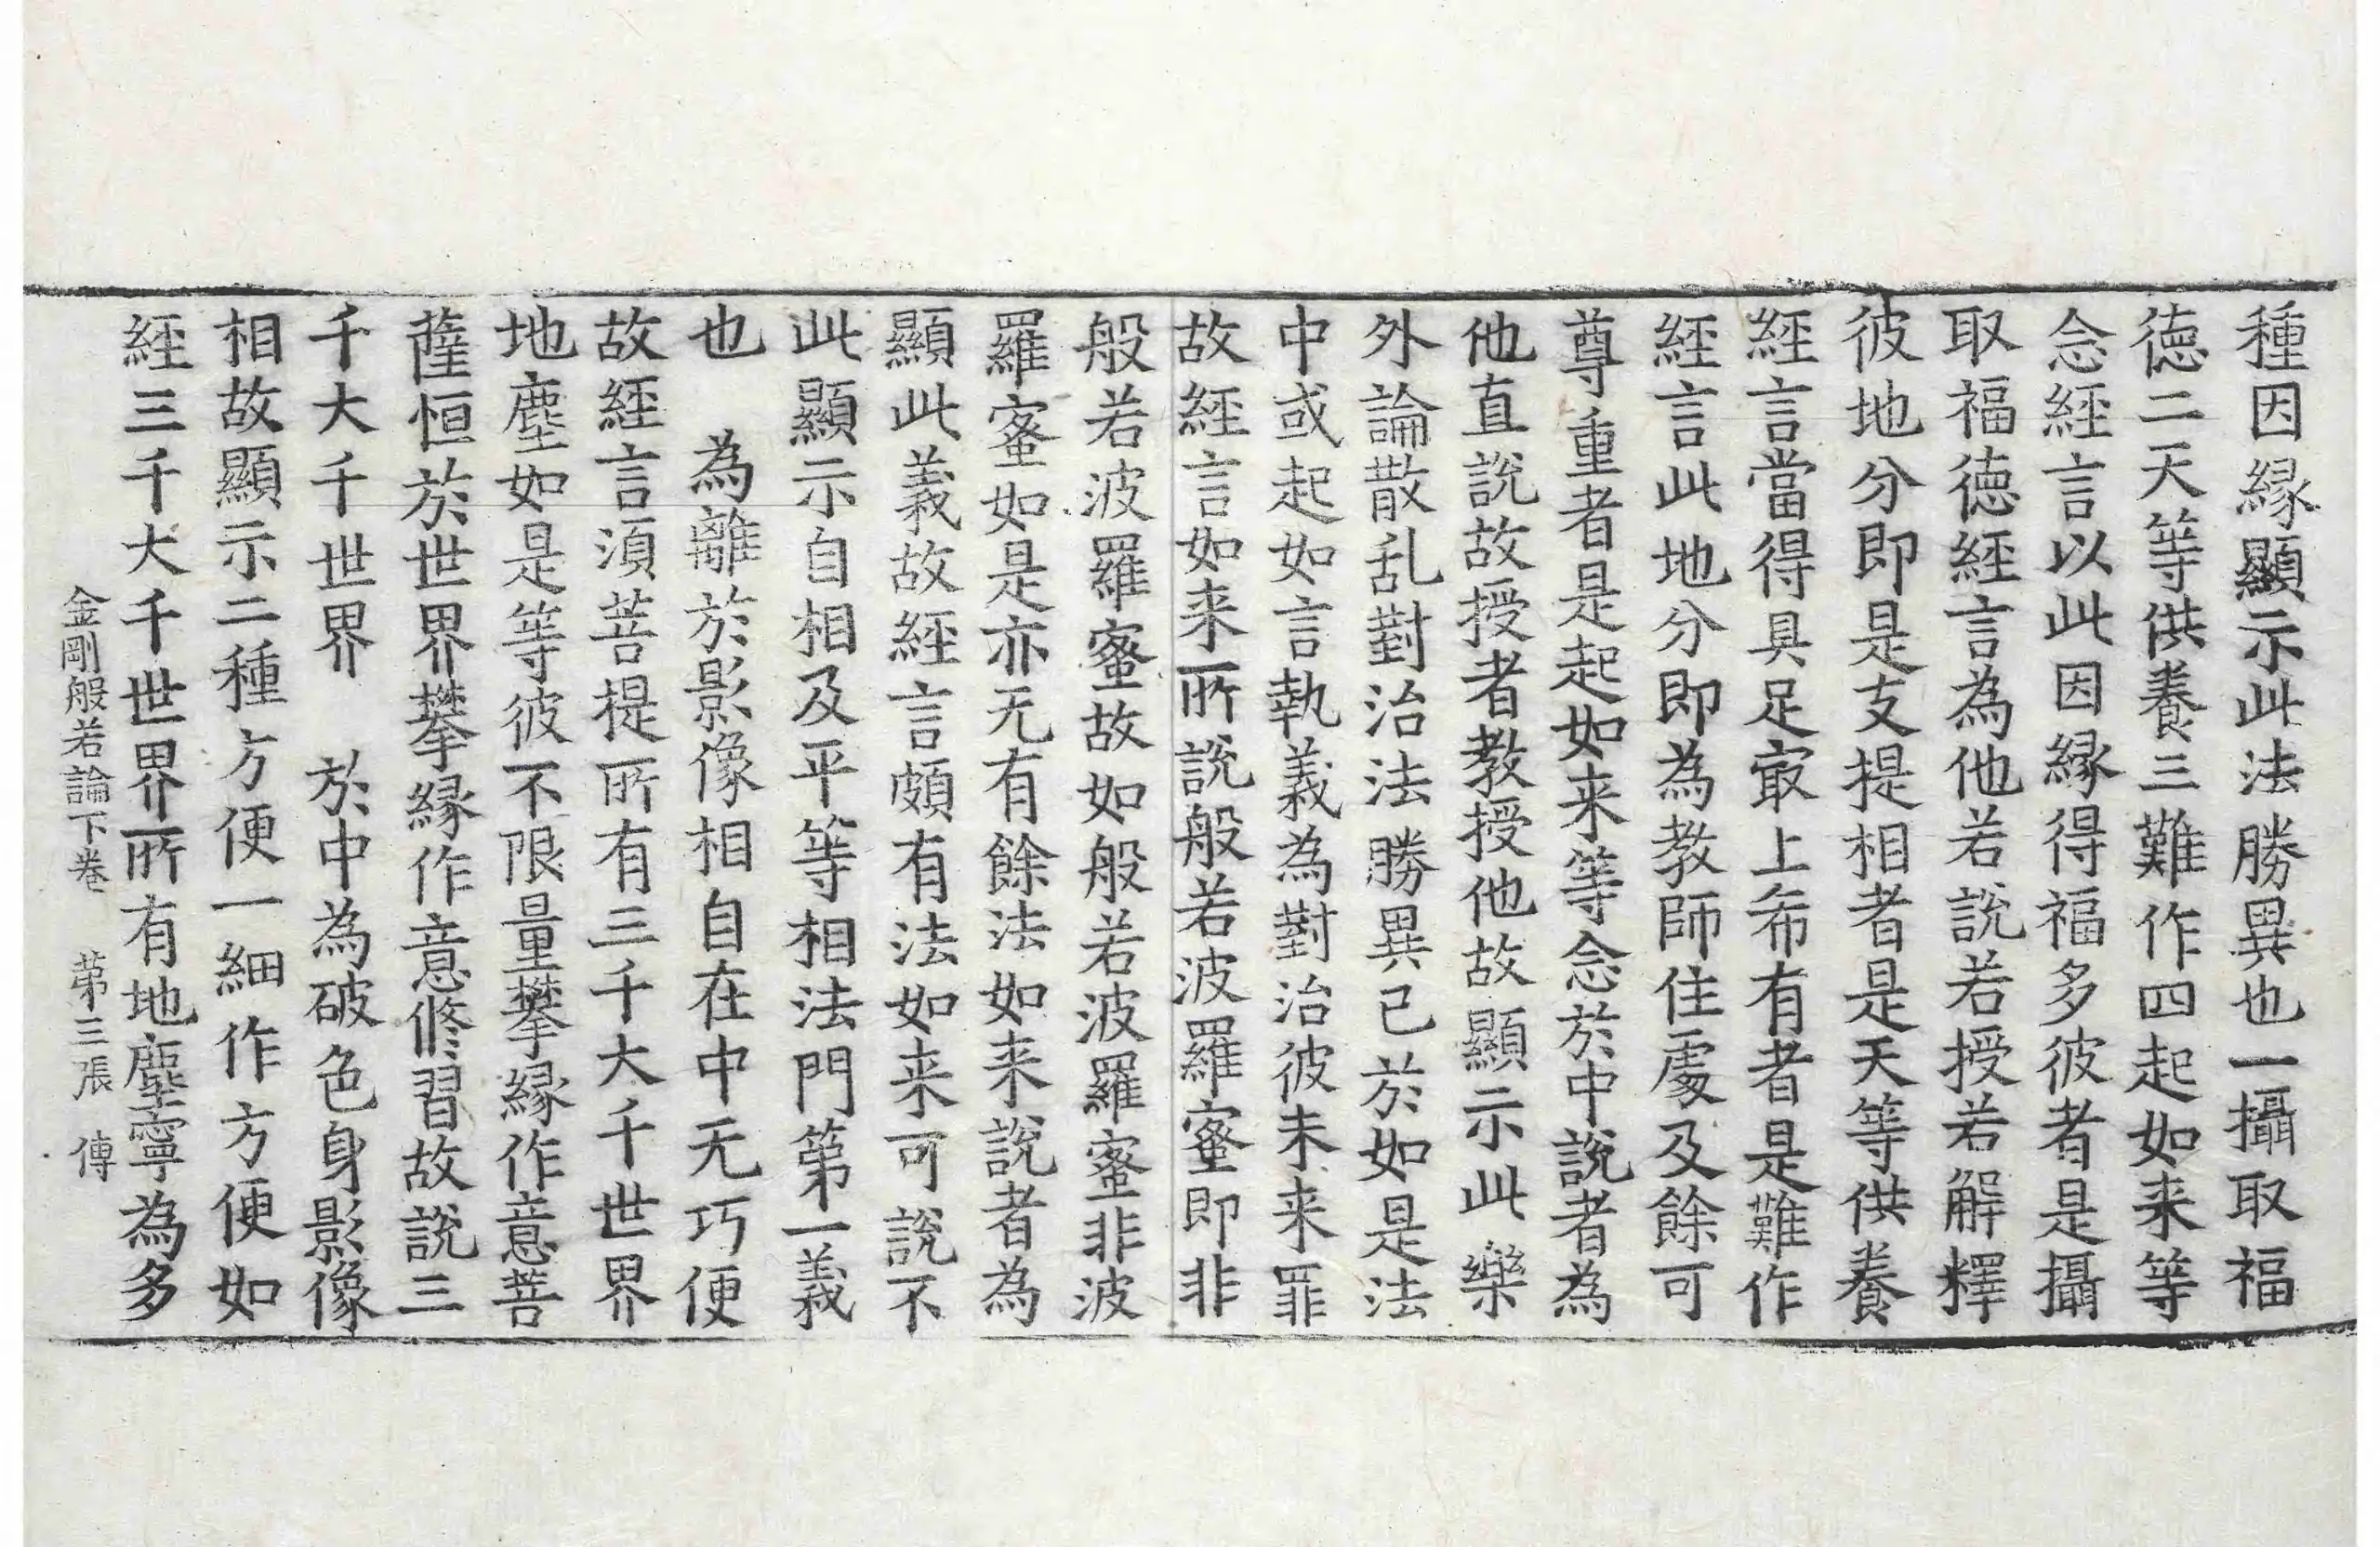 種因縁顯示此法勝異也一攝取福
徳二天等供養三難作四起如来等
念經言以此因縁得福多彼者是攝
取福徳經言為他若說若授若解釋
彼地分即是支提相者是天等供養
經言當得具足㝡上希有者是難作
經言此地分即為教師住處及餘可
尊重者是起如来等念於中說者為
他直說故授者教授他故顯示此樂
外論散乱對治法勝異已於如是法
中或起如言執義為對治彼未来罪
故經言如来所說般若波羅蜜即非
般若波羅蜜故如般若波羅蜜非波
羅蜜如是亦无有餘法如来說者為
顯此義故經言頗有法如来可說不
此顯示自相及平等相法門第一義
也　為離於影像相自在中无巧便
故經言湏菩提所有三千大千世界
地塵如是等彼不限量攀縁作意菩
薩恒於世界攀縁作意修習故說三
千大千世界　於中為破色身影像
相故顯示二種方便一細作方便如
經三千大千世界所有地塵寧為多
金剛般若論下卷　第三張　傳